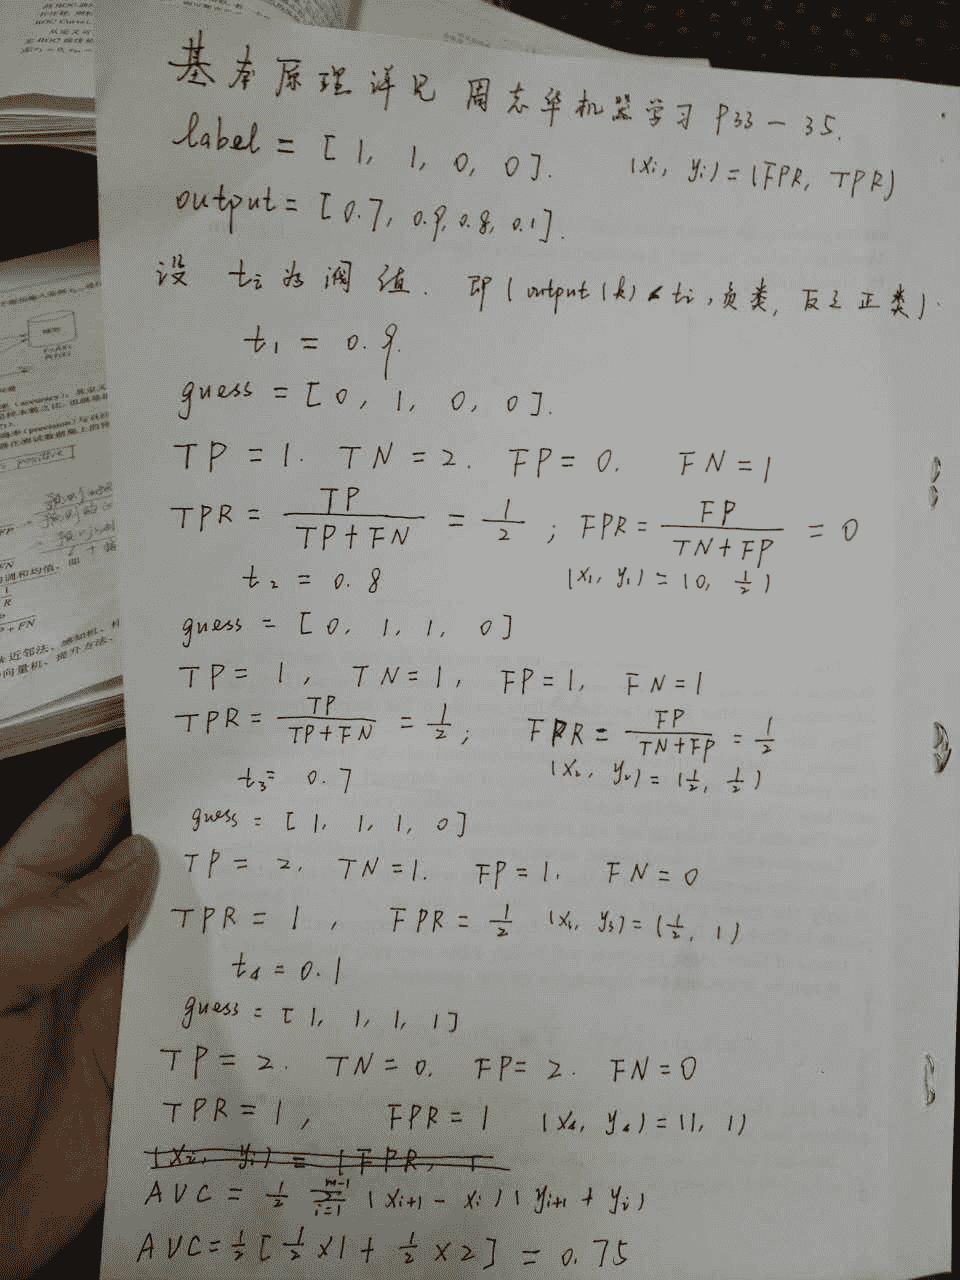 基本原理详见 周志华机器学习 P33-35.
label = [1, 1, 0, 0]. (xi, yi) = (FPR, TPR)
output = [0.7, 0.9, 0.8, 0.1].
设 ti为阀值. 即(output(k) < ti, 负类, 反之正类).
t1 = 0.9.
guess = [0, 1, 0, 0].
TP = 1. TN = 2. FP = 0. FN = 1
TPR = TP/(TP+FN) = 1/2 ; FPR = FP/(TN+FP) = 0
t2 = 0.8 (x1, y1) = (0, 1/2)
guess = [0, 1, 1, 0]
TP = 1, TN = 1, FP = 1, FN = 1
TPR = TP/(TP+FN) = 1/2; FPR = FP/(TN+FP) = 1/2
t3 = 0.7 (x2, y2) = (1/2, 1/2)
guess = [1, 1, 1, 0]
TP = 2, TN = 1. FP = 1. FN = 0
TPR = 1, FPR = 1/2 (x3, y3) = (1/2, 1)
t4 = 0.1
guess = [1, 1, 1, 1]
TP = 2. TN = 0. FP = 2. FN = 0
TPR = 1, FPR = 1 (x4, y4) = (1, 1)
(xi, yi) = (FPR, T
AUC = 1/2 ∑_{i=1}^{m-1} (xi+1 - xi)(yi+1 + yi)
AUC = 1/2 [1/2 × 1 + 1/2 × 2] = 0.75